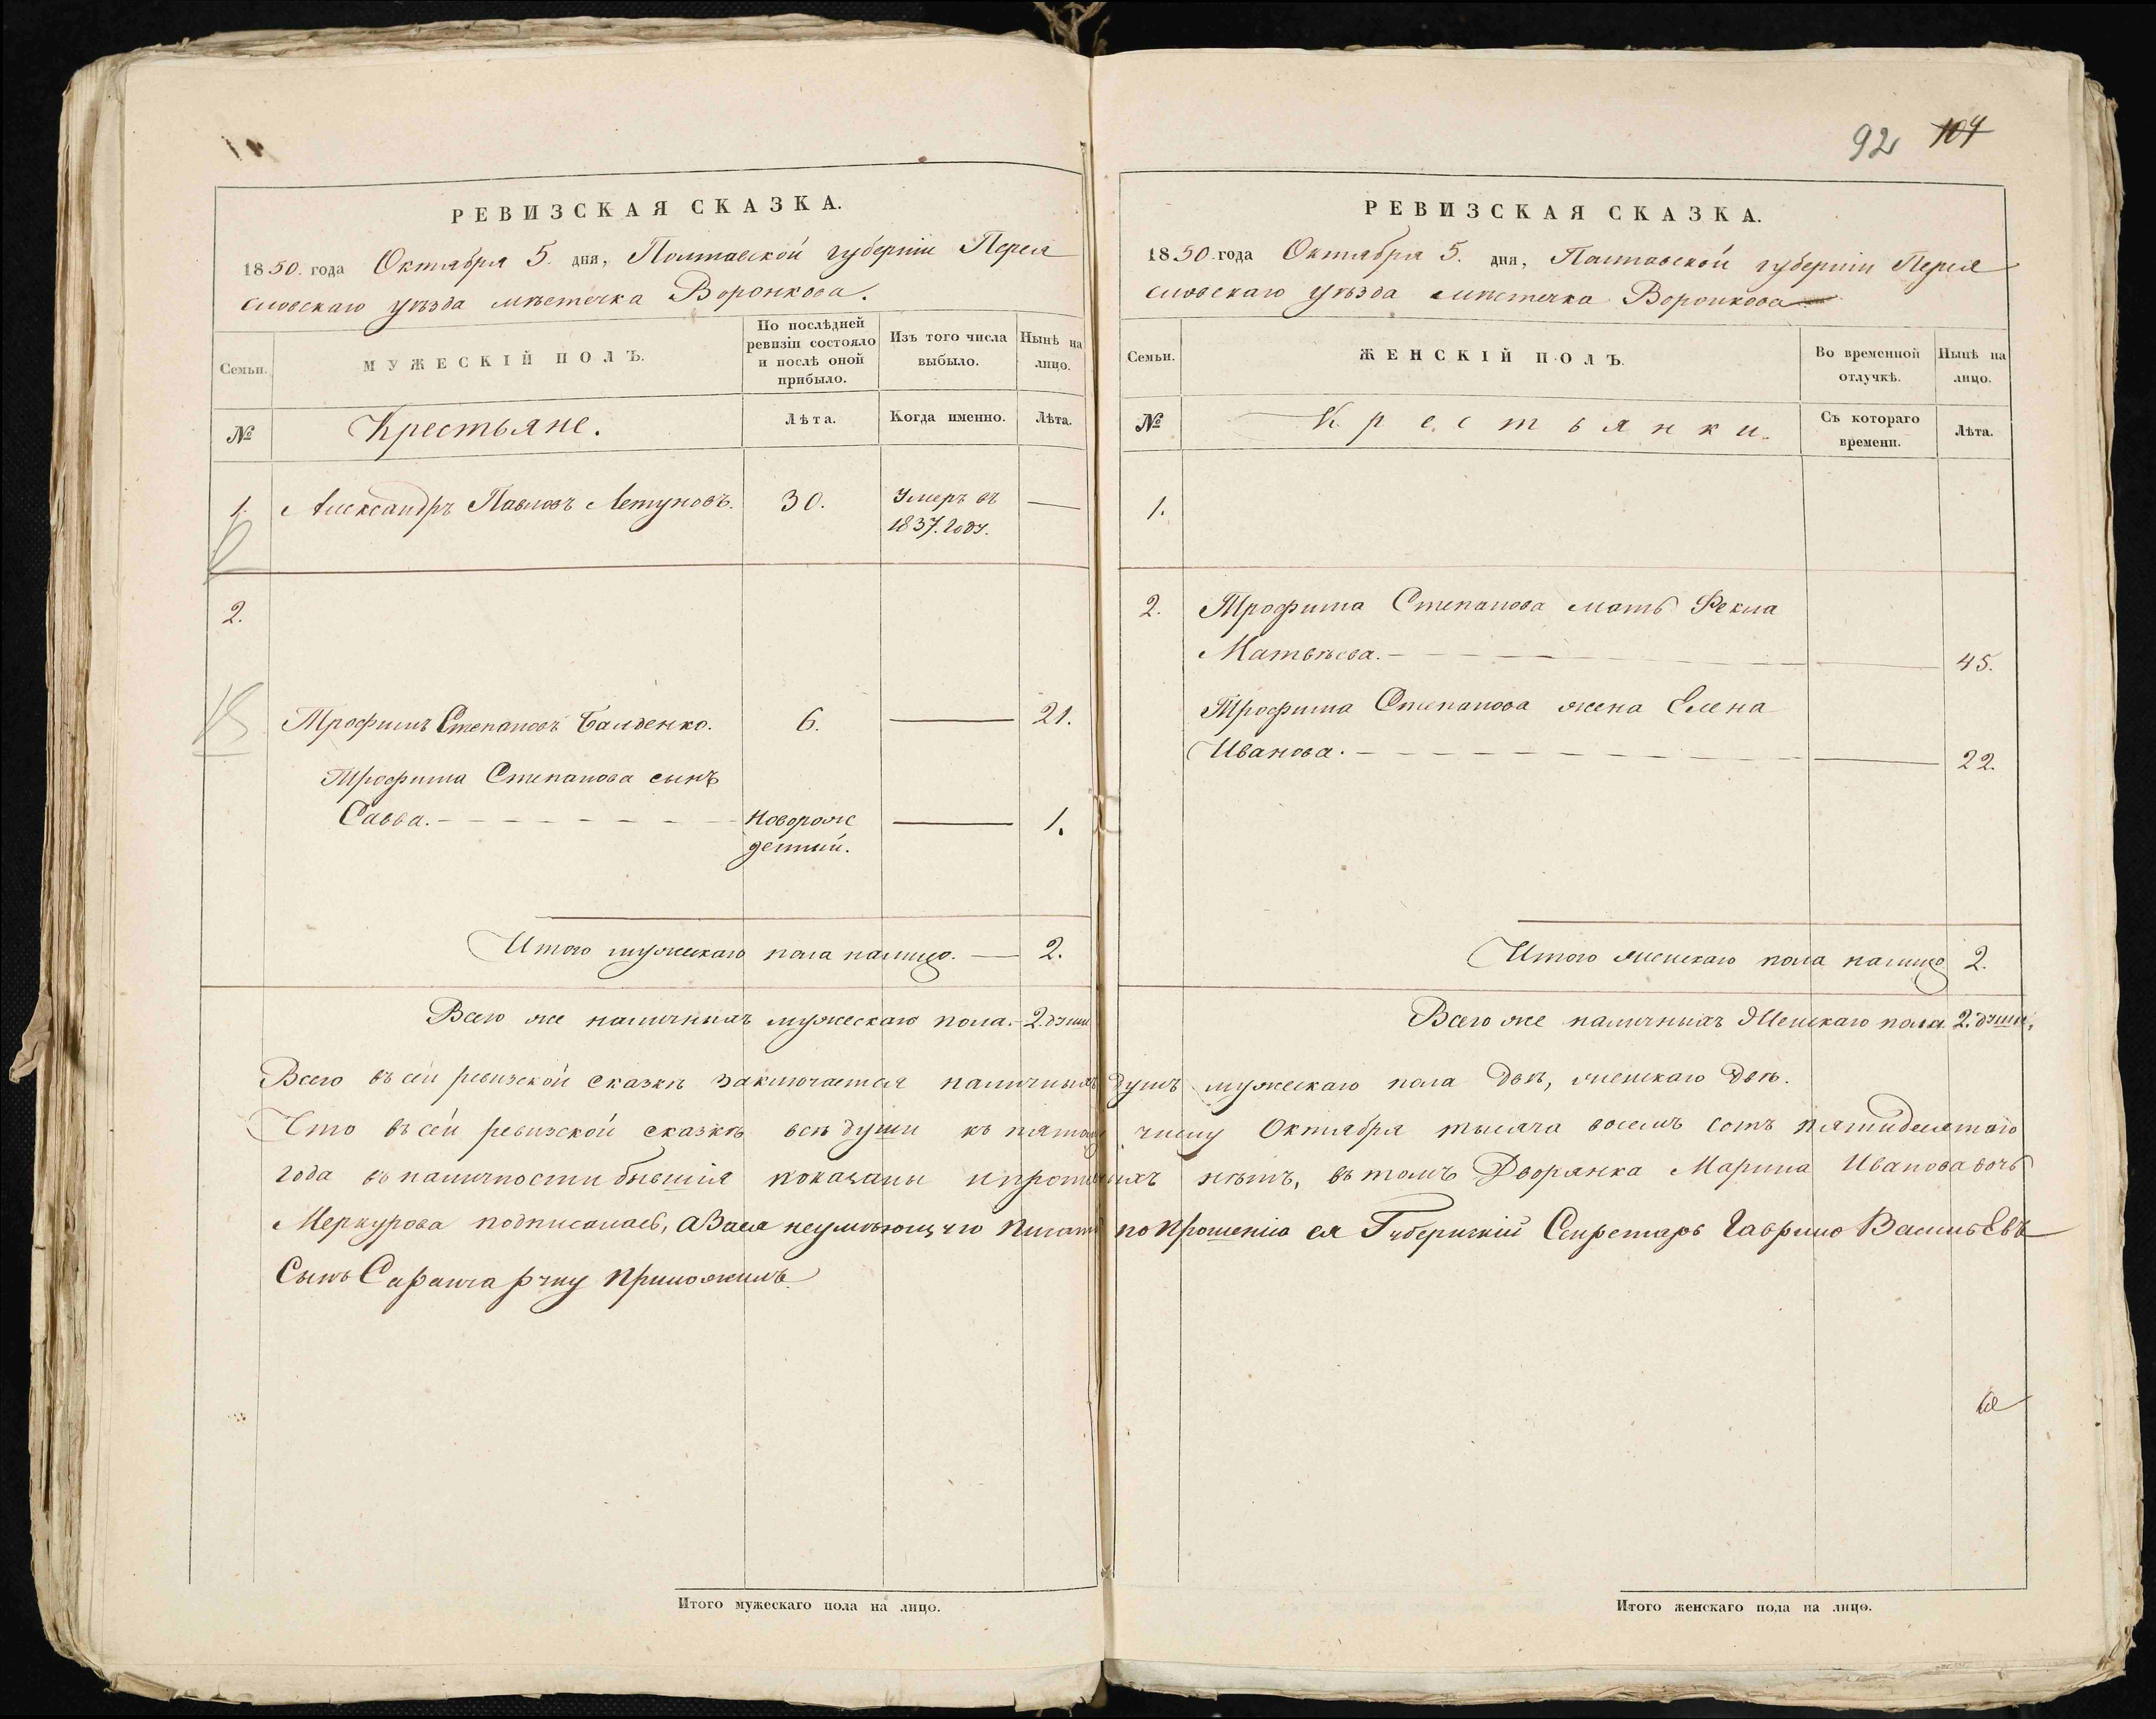 РЕВИЗСКАЯ СКАЗКА.
1850. года Октября 5. дня, Полтавской губерніи Перея
словскаго уѣзда мѣстечка Воронкова.
Семьи.
МУЖЕСКІЙ ПОЛЪ.
По послѣдней
ревизіи состояло
и послѣ оной
прибыло.
Изъ того числа
выбыло.
Нынѣ на
лицо.
№
Крестьяне.
Лѣта.
Когда именно.
Лѣта.
1. Александръ Павловъ Летуновъ. 30. Умеръ въ —
1837. году.
2.
Трофимъ Степановъ Балденко. 6. — 21.
Трофима Степанова сынъ
Савва. — Новорож — 1.
денный.
Итого мужескаго пола налицо. — 2.
Всего же наличныхъ мужескаго пола. — 2. души
92 104
РЕВИЗСКАЯ СКАЗКА.
1850. года Октября 5. дня, Полтавской губерніи Перея
словскаго уѣзда мѣстечка Воронкова
Семьи.
ЖЕНСКІЙ ПОЛЪ.
Во временной
отлучкѣ.
Нынѣ на
лицо.
№
Крестьянки.
Съ котораго
времени.
Лѣта.
1.
2. Трофима Степанова мать Фекла
Матвѣева. — — 45.
Трофима Степанова жена Елена
Иванова. — — 22.
Итого женскаго пола налицо 2.
Всего же наличныхъ Женскаго пола. 2. души,
Всего въ сей ревизской сказкѣ заключается наличныхъ душъ мужескаго пола двѣ, женскаго двѣ.
Что въ сей ревизской сказкѣ всѣ души къ пятому числу Октября тысяча восемь сотъ пятидесятаго
года въ наличности бывшія показаны и прописныхъ нѣтъ, въ томъ Дворянка Марина Иванова дочь
Меркурова подписалась, а Заея неумѣющую писать по прошенію ея Губернскій Секретарь Гаврило ВасильЕвъ
Сынъ руку приложилъ
Итого мужескаго пола на лицо.
Итого женскаго пола на лицо.